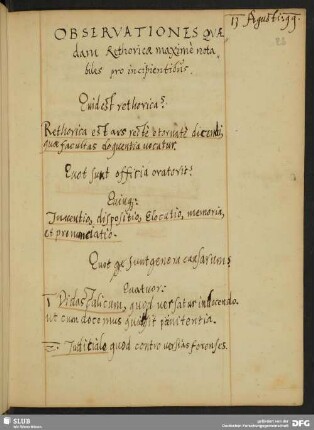 17 Agusti: 99.
OBSERVATIONES QVÆ
dam Rethoricæ maximè nota
biles pro incipientibus.
Quid est rethorica?
Rethorica est ars rectè et ornatè dicendi,
quæ facultas eloquentia uocatur.
Quot sunt officia oratoris?
Quinq:
Inuentio, dispositio, Elocutio, memoria,
et pronunciatio.
Quot sunt genera causarum?
Quatuor:
Didascalicum, quod versatur in docendo.
ut cum docemus quid sit pœnitentia.
2. Iuditiale quod controversias forenses.
SLUB
Wir führen Wissen.
gefördert von der
Deutschen Forschungsgemeinschaft
DFG